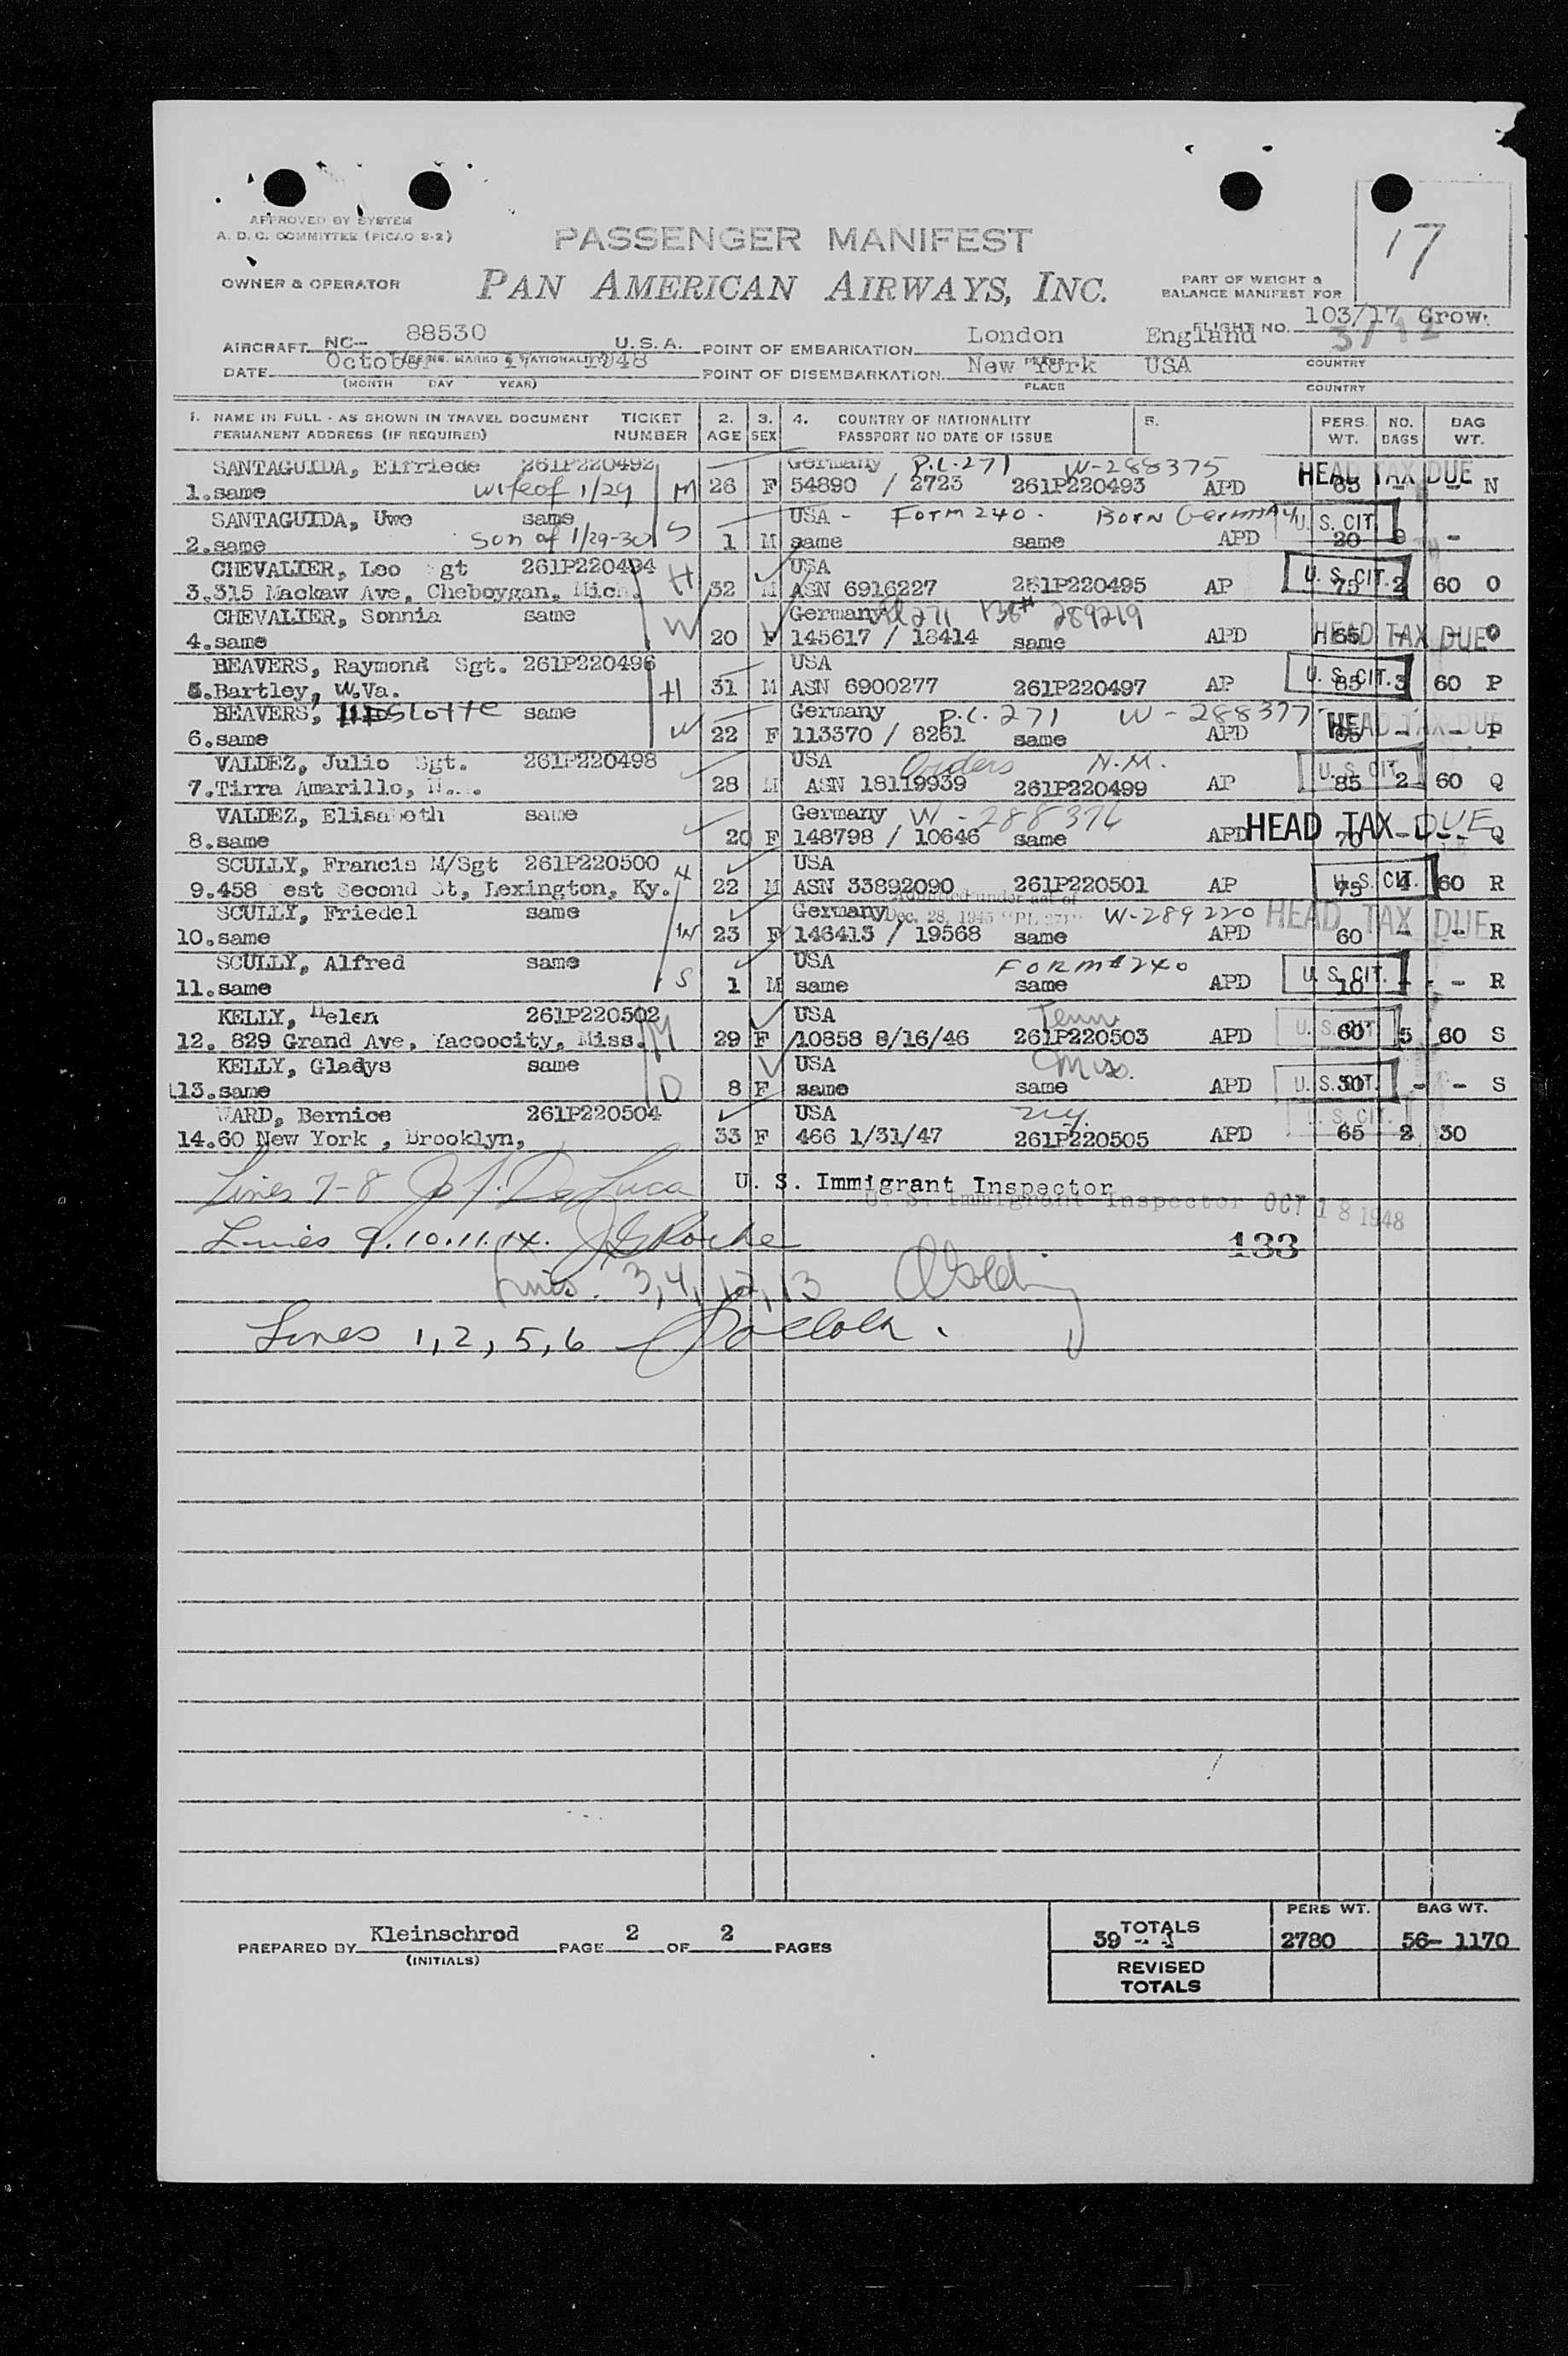 17
APPROVED BY SYSTEM
A. D. C. COMMITTEE (PICAO S-2)
PASSENGER MANIFEST
OWNER & OPERATOR
PAN AMERICAN AIRWAYS, INC.
PART OF WEIGHT &
BALANCE MANIFEST FOR
FLIGHT NO. 103/17 Crow.
AIRCRAFT NC- 88530 U.S.A. POINT OF EMBARKATION London England
DATE October 17 1948 POINT OF DISEMBARKATION New York USA
(MONTH DAY YEAR) PLACE COUNTRY
1. NAME IN FULL - AS SHOWN IN TRAVEL DOCUMENT TICKET 2. 3. 4. COUNTRY OF NATIONALITY 5. PERS. NO. BAG
PERMANENT ADDRESS (IF REQUIRED) NUMBER AGE SEX PASSPORT NO DATE OF ISSUE WT. BAGS WT.
SANTAGUIDA, Elfriede 261P220492 Germany P.L. 271 W-288375 HEAD TAX DUE
1. same wife of 1/29 M 26 F 54890 / 2723 261P220493 APD 65 - - N
SANTAGUIDA, Uwe same USA - Form 240. Born Germany U. S. CIT.
2. same Son of 1/29-30 S 1 M same same APD 20 -
CHEVALIER, Leo Sgt 261P220494 H USA U. S. CIT.
3. 315 Mackaw Ave, Cheboygan, Mich. 32 M ASN 6916227 261P220495 AP 75 2 60 O
CHEVALIER, Sonnia same W Germany 271 289219
4. same 20 F 145617 / 18414 same APD 65 - - O HEAD TAX DUE
BEAVERS, Raymond Sgt. 261P220496 USA U. S. CIT.
5. Bartley, W.Va. H 31 M ASN 6900277 261P220497 AP 85 3 60 P
BEAVERS, same Germany P.L. 271 W - 288377 HEAD TAX DUE
6. same W 22 F 113370 / 8261 same APD 65 - - P
VALDEZ, Julio Sgt. 261P220498 USA Orders N.M. U. S. CIT.
7. Tirra Amarillo, 28 M ASN 18119939 261P220499 AP 85 2 60 Q
VALDEZ, Elisabeth same Germany W - 288376
8. same 20 F 148798 / 10646 same APD HEAD TAX DUE 70 - - Q
SCULLY, Francis M/Sgt 261P220500 H USA U. S. CIT.
9. 458 est Second St, Lexington, Ky. 22 M ASN 33892090 261P220501 AP 75 4 60 R
SCULLY, Friedel same Germany Admitted under act of Dec. 28, 1945 "PL 271" W-289220 HEAD TAX DUE
10. same W 23 F 146413 / 19568 same APD 60 - - R
SCULLY, Alfred same USA FORM #240 U. S. CIT.
11. same S 1 M same same APD 10 - - R
KELLY, Helen 261P220502 USA Tenn. U. S. CIT.
12. 829 Grand Ave, Yacoocity, Miss. M 29 F 10858 8/16/46 261P220503 APD 60 5 60 S
KELLY, Gladys same USA Miss. U. S. CIT.
13. same D 8 F same same APD 30 - - S
WARD, Bernice 261P220504 USA N.Y. U. S. CIT.
14. 60 New York , Brooklyn, 33 F 466 1/31/47 261P220505 APD 65 2 30
Lines 7-8 Jo. F. DeLuca U. S. Immigrant Inspector
U. S. Immigrant Inspector OCT 18 1948
Lines 9.10.11.14. J G Roche 133
Lines. 3,4,12,13
Lines 1,2,5,6
PREPARED BY Kleinschrod PAGE 2 OF 2 PAGES
(INITIALS)
PERS WT. BAG WT.
TOTALS 39 2780 56- 1170
REVISED
TOTALS